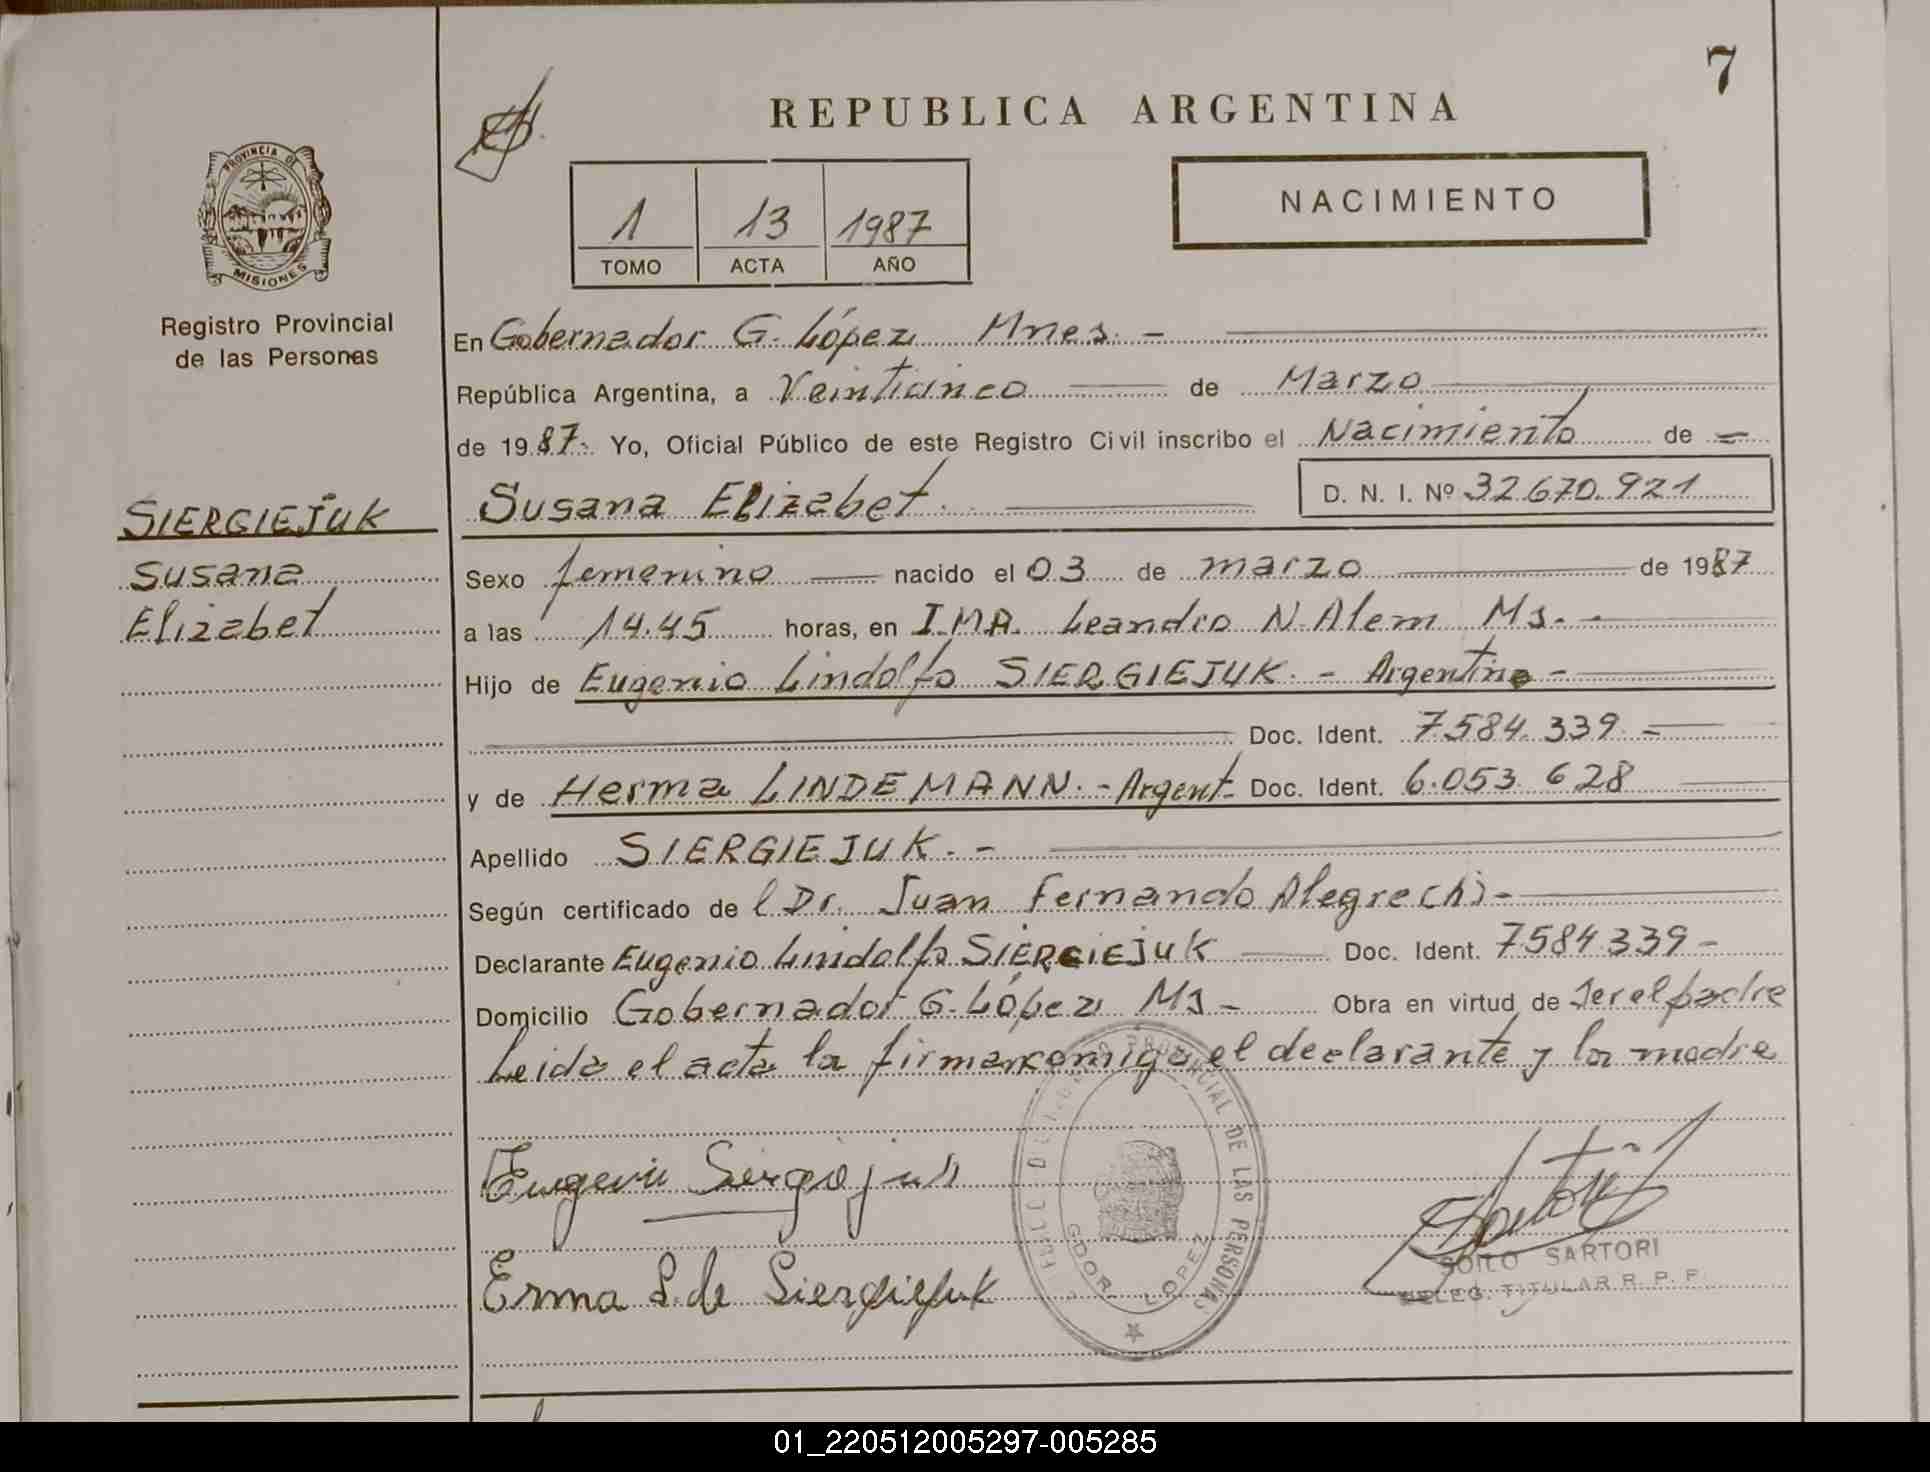 7
REPUBLICA ARGENTINA
PROVINCIA DE
MISIONES
Registro Provincial
de las Personas
1 13 1987
TOMO ACTA AÑO
NACIMIENTO
En Gobernador G. López Mnes. -
República Argentina, a Veinticinco de Marzo
de 1987. Yo, Oficial Público de este Registro Civil inscribo el Nacimiento de -
Susana Elizabet. D. N. I. Nº 32.670.921
SIERGIEJUK
Susana
Elizabet
Sexo femenino nacido el 03 de marzo de 1987
a las 14.45 horas, en I.M.A. Leandro N. Alem Ms. -
Hijo de Eugenio Lindolfo SIERGIEJUK. - Argentino -
Doc. Ident. 7.584.339 -
y de Herma LINDEMANN. - Argent. Doc. Ident. 6.053.628
Apellido SIERGIEJUK. -
Según certificado de l Dr. Juan Fernando Alegrechi -
Declarante Eugenio Lindolfo SIERGIEJUK Doc. Ident. 7.584.339 -
Domicilio Gobernador G. López Ms - Obra en virtud de Ser el padre
Leida el acta la firman comigo el declarante y la madre
Eugenio
Erma L. de Siergiejuk
PROVINCIAL DE LAS PERSONAS
GDOR. LOPEZ
SOILO SARTORI
DELEG. TITULAR R. P. P.
01_220512005297-005285